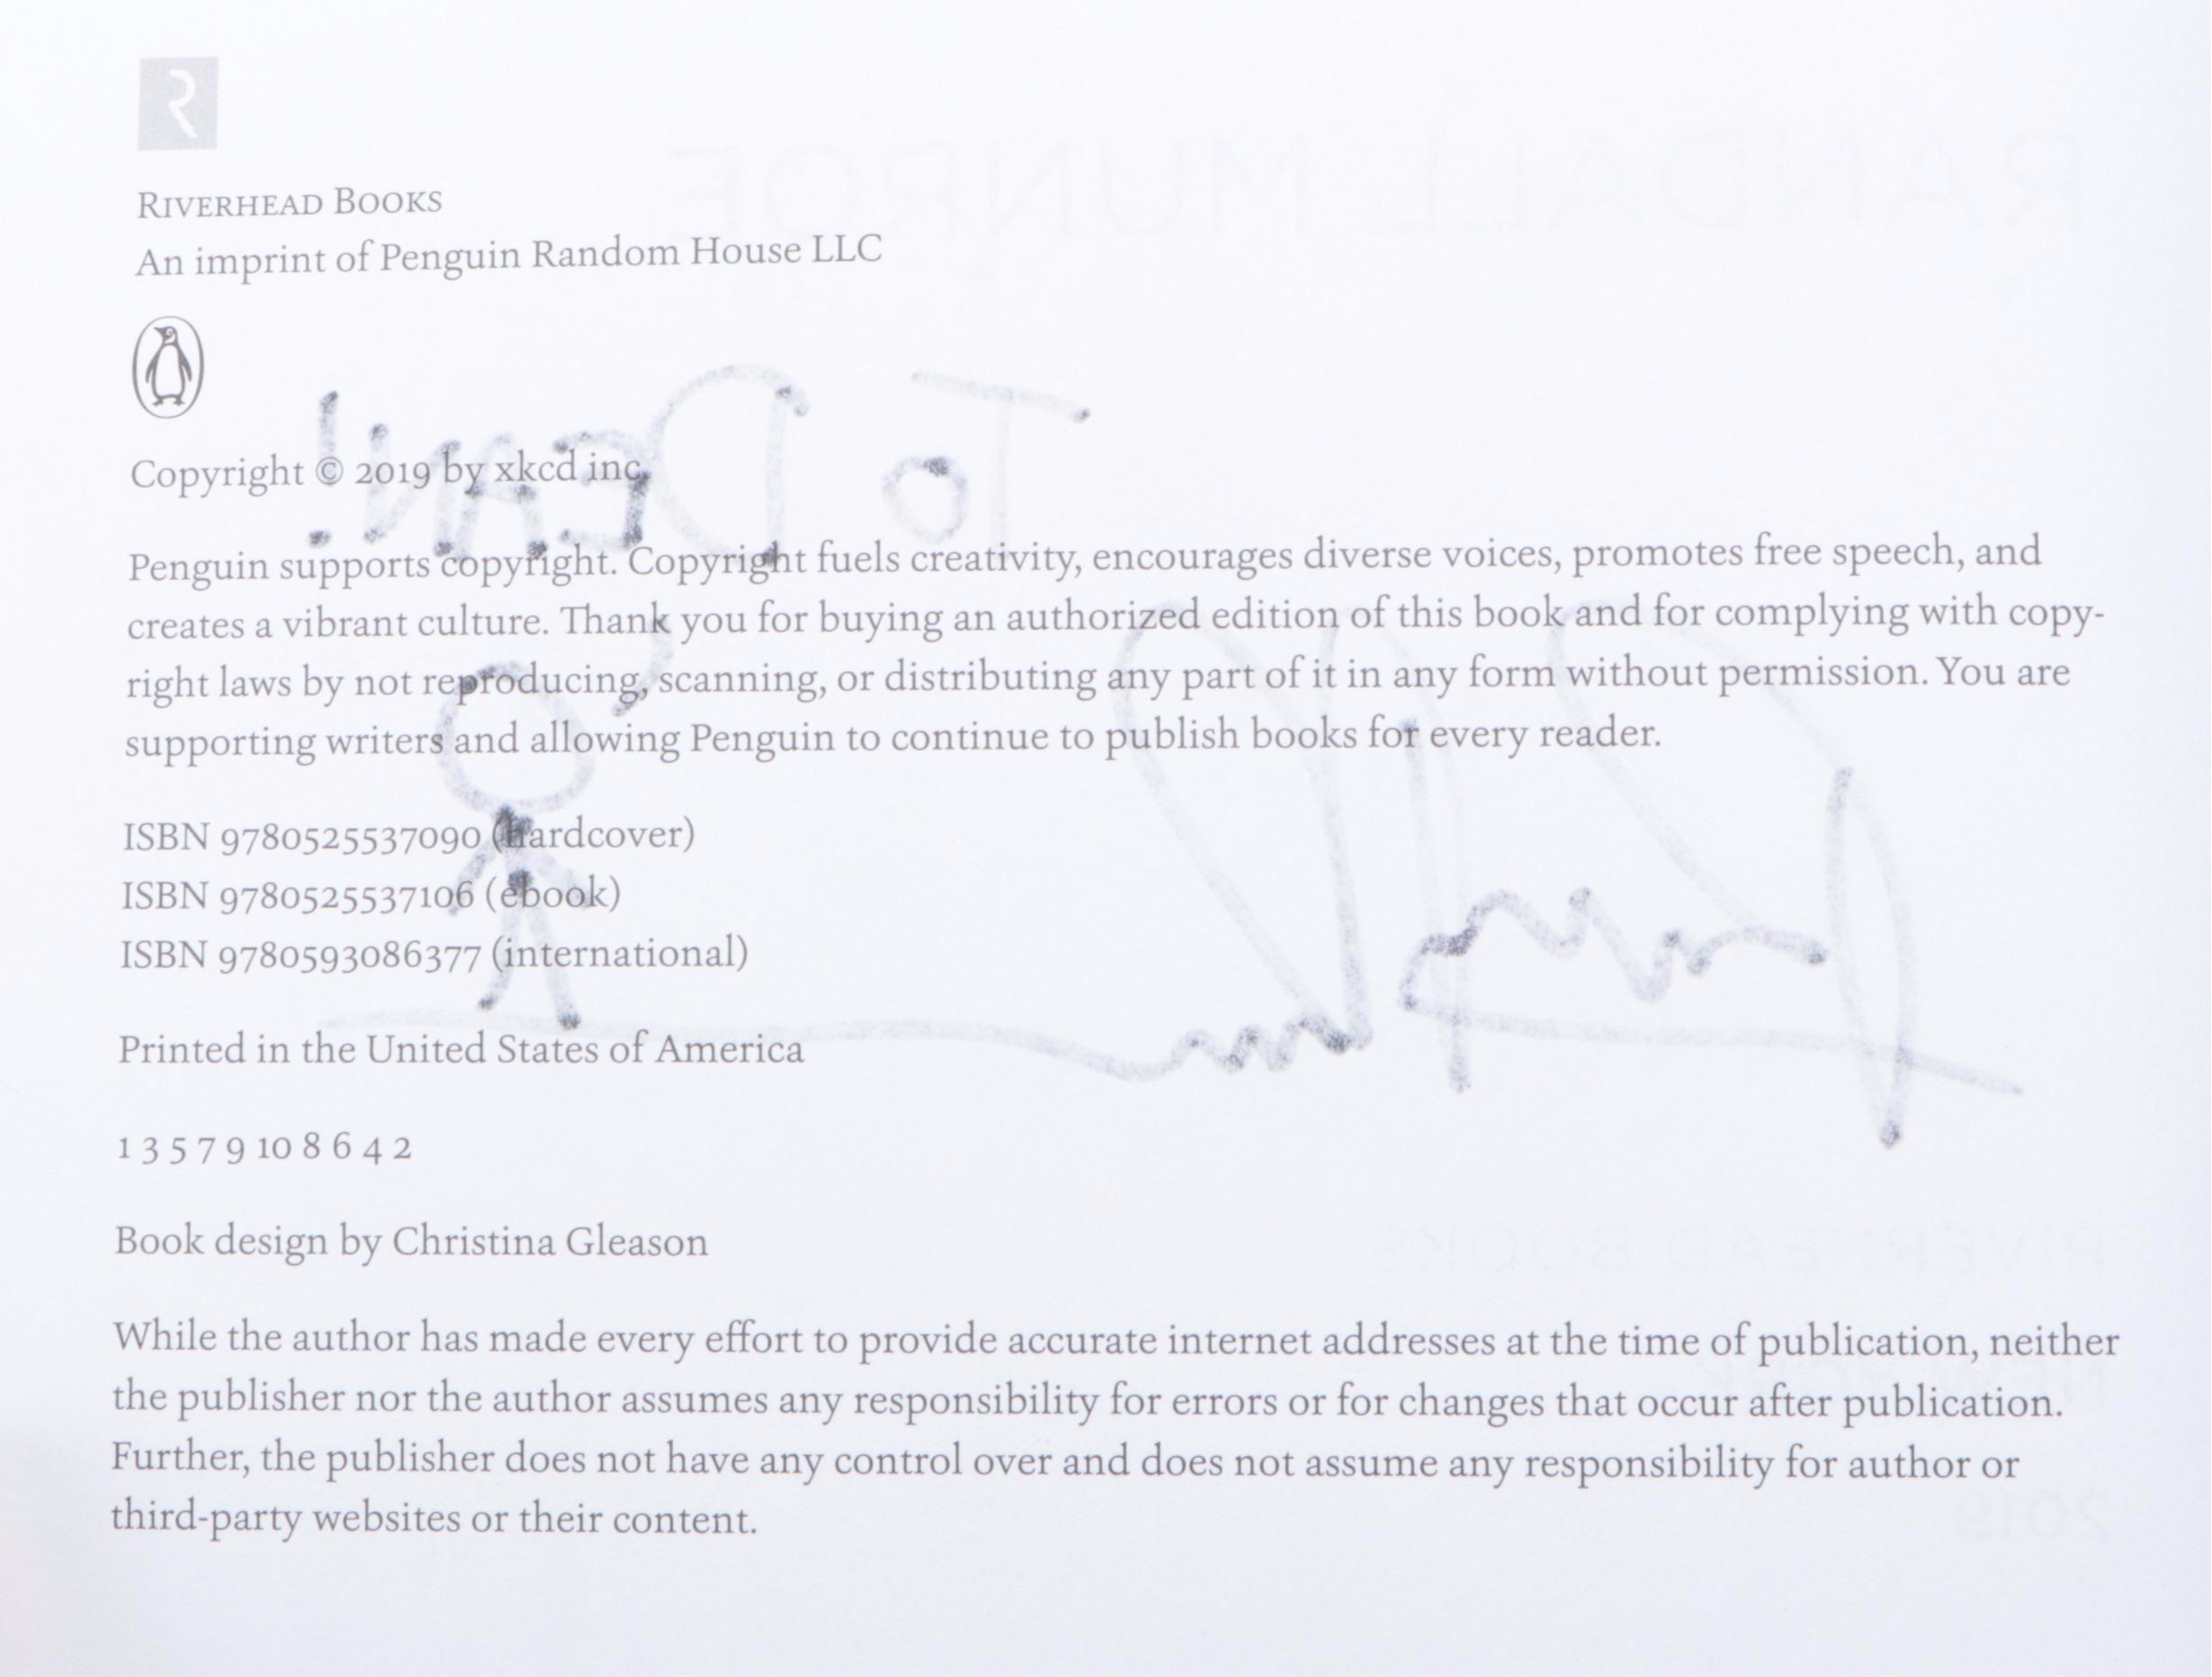 R
RIVERHEAD BOOKS
An imprint of Penguin Random House LLC
RANDALL MUNROE
To DEAN!
Copyright © 2019 by xkcd inc.
Penguin supports copyright. Copyright fuels creativity, encourages diverse voices, promotes free speech, and
creates a vibrant culture. Thank you for buying an authorized edition of this book and for complying with copy-
right laws by not reproducing, scanning, or distributing any part of it in any form without permission. You are
supporting writers and allowing Penguin to continue to publish books for every reader.
ISBN 9780525537090 (hardcover)
ISBN 9780525537106 (ebook)
ISBN 9780593086377 (international)
Printed in the United States of America
1 3 5 7 9 10 8 6 4 2
Book design by Christina Gleason
RIVERHEAD BOOKS
While the author has made every effort to provide accurate internet addresses at the time of publication, neither
the publisher nor the author assumes any responsibility for errors or for changes that occur after publication.
Further, the publisher does not have any control over and does not assume any responsibility for author or
third-party websites or their content.
NEW YORK
2019